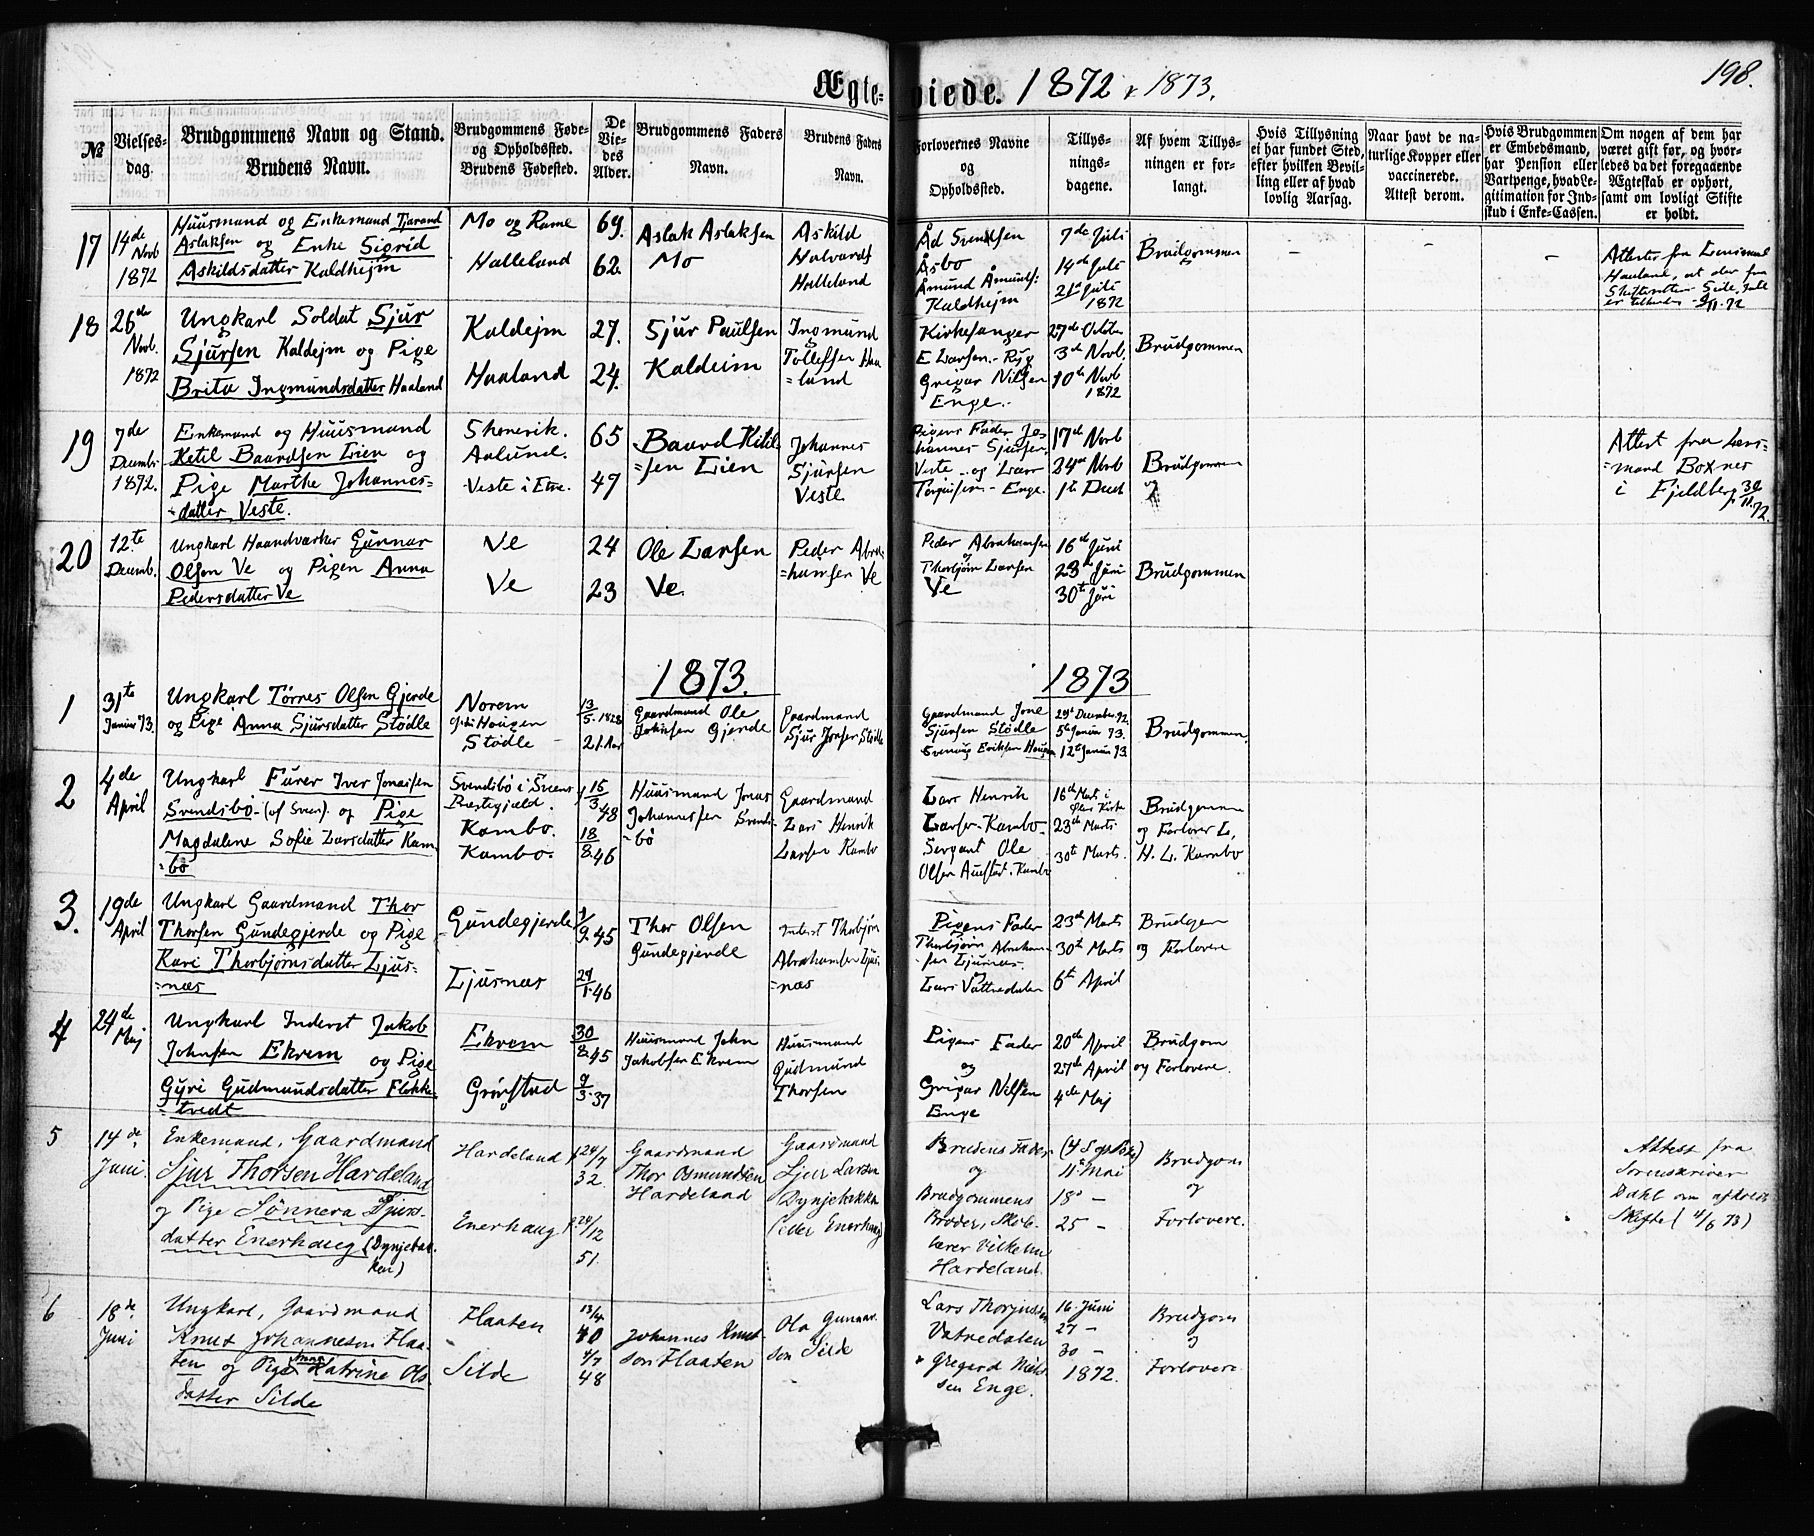 Ægte-viede. 1872 & 1873.
198.
№
Vielses-
dag.
Brudgommens Navn og Stand.
Brudens Navn.
Brudgommens Føde-
og Opholdssted.
Brudens Fødested.
De
Vie-
des
Alder.
Brudgommens Faders
Navn.
Brudens Faders
Navn.
Forlovernes Navne
og
Opholdssted.
Tillys-
nings-
dagene.
Af hvem Tillys-
ningen er for-
langt.
Hvis Tillysning
ei har fundet Sted,
efter hvilken Bevil-
ling eller af hvad
lovlig Aarsag.
Naar havt de na-
turlige Kopper eller
vaccinerede.
Attest derom.
Hvis Brudgommen
er Embedsmand,
har Pension eller
Vartpenge, hvad Le-
gitimation for Ind-
skud i Enke-Cassen.
Om nogen af dem har
været gift før, og hvor-
ledes da det foregaaende
Ægteskab er ophørt,
samt om lovligt Skifte
er holdt.
17
14de
Novb
1872
Huusmand og Enkemand Tjerand
Aslaksen og Enke Sigrid
Askildsdatter Kaldhejm
Mo og Rame
Halleland
69.
62.
Aslak Aslaksen
Mo
Askild
Halvards
Halleland
Åd Svendsen
Åsbo
Åmund Åmunds:
Kaldhejm
7de Juli
14de Juli
21st Juli
1872
Brudgommen
–
–
–
Attester fra
Haaland, at der fra
er 9/11.72
18
26de
Novb.
1872
Ungkarl Soldat Sjur
Sjursen Kaldejm og Pige
Brita Ingmundsdatter Haaland
Kaldejm
Haaland
27.
24.
Sjur Paulsen
Kaldeim
Ingmund
Tollefsen Haa
=land
Kirkesanger
E Larsen - Ryg
Grigar Nilsen
Enge.-
27de Octobr
3de Novb.
10de Novb
1872
Brudgommen
19
7de
Decembr
1872.
Enkemand og Huusmand
Ketil Baardsen Lien og
Pige Marthe Johannes-
-datter Veste.
Skonevik.
Aalund.
Veste i Etne.
65
47
Baard Ketil
=sen Lien
Johannes
Sjursen
Veste
Pigens Fader Jo-
hannes Sjursen
Veste og Lars
Torgusen - Enge.
17de Novb
24de Novb
1te Decb
Brudgommen
og
Attest fra Lens-
=mand Boxnes
i Fjeldberg 30/11.72.
20
12.te
Decemb.
Ungkarl Haandværker Gunnar
Olsen Ve og Pigen Anna
Pedersdatter Ve
Ve
Ve
24
23
Ole Larsen
Ve.
Peder Abra-
=hamsen Ve
Peder Abrahamsen
og
Thorbjørn Larsen
Ve
16de Juni
23de Juni
30te Juni
Brudgommen
1873.
1873
1
31te
Januar 73.
Ungkarl Tørres Olsen Gjerde
og Pige Anna Sjursdatter Stødle
Norem
Opt: Hougen
Stødle
13/5.1828
21 Aar
Gaardmand Ole
Johnsen Gjerde
Gaardmand
Sjur Jonsen Stødle
Gaardmand Jone
Sjursen Stødle
Svenung Eriksen Hougen
29de December 72.
5te Januar 73.
12te Januar 73.
Brudgommen.
2
4de
April
Ungkarl Furer Iver Jonassen
Svendsbø-(af Sveen). og Pige
Magdalene Sofie Larsdatter Kam
=bø
Svendsbø i Sveens
Prestegjæld.
Kambo.
Kambo.
15/3 48
18/8.46
Huusmand Jonas
Johannessen Svends-
=bö
Gaardmand
Lars Henrik
Larsen Kambo
Lars Henrik
Larsen - Kambo-
Sergant Ole
Olsen Auestad. Kambo
16de Marts i
Ølens Kirke
23de Marts
30te Marts.
Brudgommen
og Forlover L.
H. L. Kambo
3.
19de
April
Ungkarl Gaardmand Thor
Thorsen Gundegjerde og Pige
Kari Thorbjørnsdatter Ljus-
=næs
Gundegjerde
Ljusnæs
1/9.45
29/1.46
Thor Olsen
Gundegjerde
Inderst Thorbjørn
Abrahamsen Ljus
=næs
Pigens Fader
Thorbjørn Abraham-
=sen Ljusnæs.
og
Lars Vattredalen
23de Marts
30te Marts
6te April
Brudgom
og Forlovere
4
24de
Maj
Ungkarl Inderst Jakob
Johnsen Ekrem og Pige
Gyri Gudmundsdatter Flokke-
=tvedt
Ekrem
Grønstad
30/8.45
9/3.37
Huusmand John
Jakobsen Ekrem
Huusmand
Gudmund
Thorsen
Pigens Fader
og
Grigar Nilsen
Enge
20de April
27de April
4de Maj
Brudgom
og Forlovere.
5
14de
Juni.
Enkemand, Gaardmand
Sjur Thorsen Hardeland
og Pige Sønneva Sjurs-
datter Enerhaug (Dynjebak-
ken)
Hardeland
Enerhaug
f. 24/7
32.
f. 24/12
51.
Gaardmand
Thor Osmundsen
Hardeland
Gaardmand
Sjur Larsen
Dynjebakka
(eller Enerhaug)
Brudens Fader
og
Brudgommens
Broder, Skole-
lærer Vilhelm
Hardeland.
11te Mai
18 –
25 –
Brudgom
og
Forlovere.
Attest fra
Sorenskriver
Dahl om afholdt
Skifte (4/6 73)
6
18de
Juni
Ungkarl, Gaardmand
Knut Johannesen Flaa-
ten og Pige Anna Katrine Ols-
datter Silde
Flaaten
Silde
13/4
40
4/7
48
Johannes Knut-
son Flaaten
Ola Gunnar
son Silde
Lars Thorgussen
Vatredalen
& Gregard Niels-
sen Enge.
16. Juni
27 –
30 –
1872.
Brudgom
og
Forlovere.